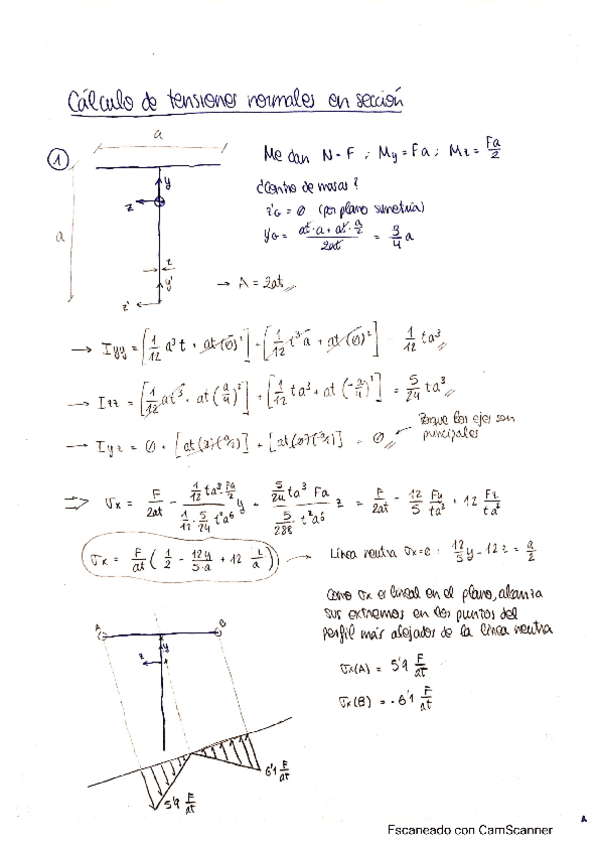 Cálculo de tensiones normales en sección
a
1
Me dan N = F ; My = Fa ; Mz = Fa/2
y
¿Centro de masas?
z
z'G = 0 (por plano simetría)
a
yG = (at·a + at·a/2)/2at = 3/4 a
t
y'
→ A = 2at
z'
→ Iyy = [1/12 a³t + at(0)²] + [1/12 t³a + at(0)²] = 1/12 ta³
→ Izz = [1/12 at³ + at(a/4)²] + [1/12 ta³ + at(-a/4)²] = 5/24 ta³
Porque los ejes son
principales
→ Iyz = 0 + [at(0)(a/4)] + [at(0)(-a/4)] = 0
⇒ σx = F/2at - (1/12 ta³ Fa/2)/(1/12 · 5/24 t²a⁶) y + (5/24 ta³ Fa)/(5/288 t²a⁶) z = F/2at - 12/5 Fy/ta² + 12 Fz/ta²
σx = F/at (1/2 - 12y/5·a + 12 z/a) → Línea neutra σx=0 : 12/5 y - 12 z = a/2
Como σx es lineal en el plano, alcanza
sus extremos en los puntos del
perfil más alejados de la línea neutra
A
B
y
z
σx(A) = 5'9 F/at
σx(B) = -6'1 F/at
6'1 F/at
5'9 F/at
A
Escaneado con CamScanner